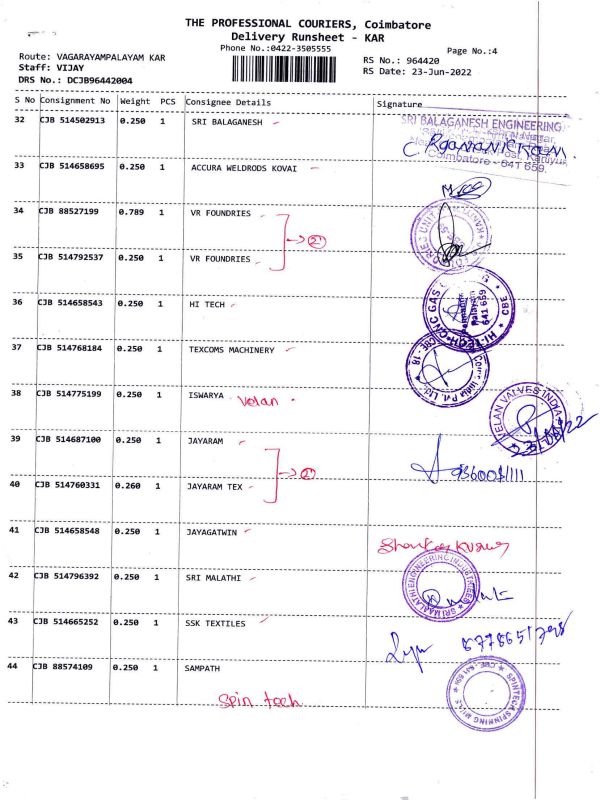 THE PROFESSIONAL COURIERS, Coimbatore
Delivery Runsheet - KAR
Phone No.:0422-3505555
Page No.:4
Route: VAGARAYAMPALAYAM KAR
RS No.: 964420
Staff: VIJAY
RS Date: 23-Jun-2022
DRS No.: DCJB96442004
S No Consignment No Weight PCS Consignee Details Signature
32 CJB 514502913 0.250 1 SRI BALAGANESH
SRI BALAGANESH ENGINEERING
Coimbatore - 641 659.
33 CJB 514658695 0.250 1 ACCURA WELDRODS KOVAI
34 CJB 88527199 0.789 1 VR FOUNDRIES
2
35 CJB 514792537 0.250 1 VR FOUNDRIES
36 CJB 514658543 0.250 1 HI TECH
HI-TECH CNC GAS
641 659
CBE
37 CJB 514768184 0.250 1 TEXCOMS MACHINERY
CBE-18
India Pvt. Ltd.
38 CJB 514775199 0.250 1 ISWARYA Velan
VELAN VALVES INDIA
39 CJB 514687100 0.250 1 JAYARAM
2
40 CJB 514760331 0.260 1 JAYARAM TEX
41 CJB 514658548 0.250 1 JAYAGATWIN
42 CJB 514796392 0.250 1 SRI MALATHI
SRI MALATHI ENGINEERING INDUSTRIES
43 CJB 514665252 0.250 1 SSK TEXTILES
44 CJB 88574109 0.250 1 SAMPATH
Spin tech
SPINTECH SPINNING MILLS